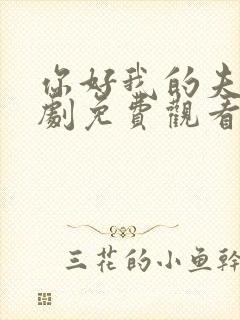 你好我的夫
劇免費觀看
三花的小鱼幹